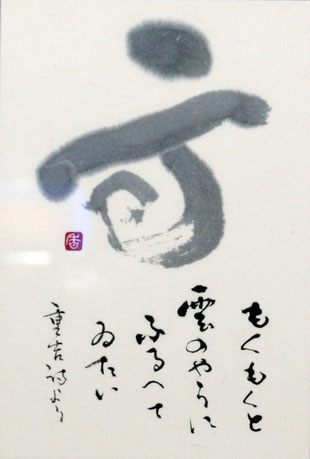 雲
もくもくと
雲のやうに
ふるへて
ゐたい
重吉詩より